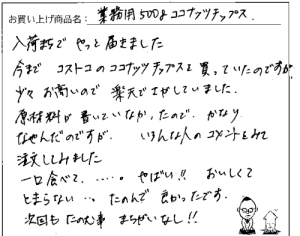 お買い上げ商品名: 業務用500gココナッツチップス.
入荷まちで やっと届きました
今まで コストコのココナッツチップスを買っていたのですが
少々 お高いので 楽天でさがしていました。
原材料が書いていなかったので、かなり
なやんだのですが、 いろんな人のコメントをみて
注文してみました
一口食べて、・・・。 やばい!! おいしくて
とまらない・・。たのんで 良かったです。
次回も たのむ事 まちがいなし!!